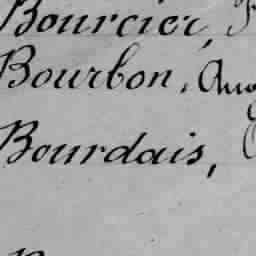 Bourcier,
Bourbon, Aug
Bourdais,